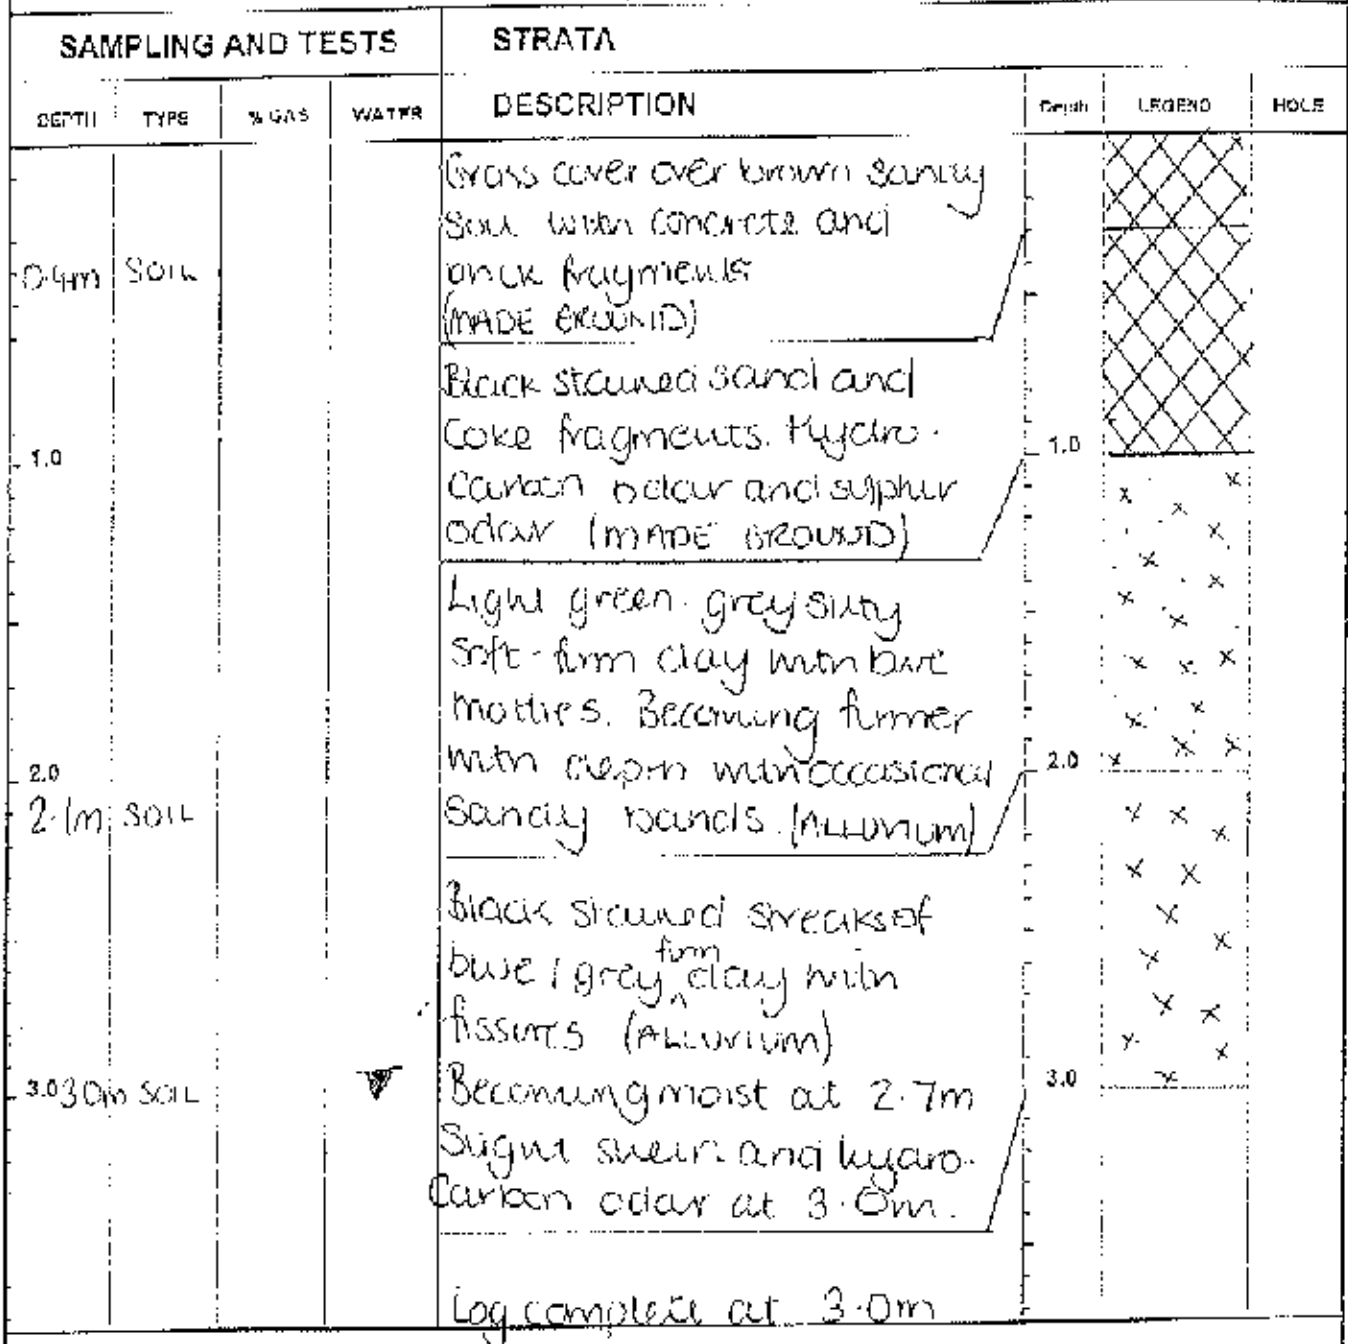 SAMPLING AND TESTS STRATA
DEPTH TYPE % GAS WATER DESCRIPTION Depth LEGEND HOLE
Grass cover over brown sandy
soil with concrete and
0.4m SOIL brick fragments
(MADE GROUND)
Black stained sand and
Coke fragments. Hydro-
1.0 1.0
Carbon odour and sulphur
odour (MADE GROUND)
Light green-grey silty
soft-firm clay with blue
mottles. Becoming firmer
2.0 with depth with occasional 2.0
2.1m SOIL sandy bands. (ALLUVIUM)
Black stained streaks of
blue / grey firm clay with
fissures (ALLUVIUM)
3.0 3.0m SOIL Becoming moist at 2.7m 3.0
Slight sheen and hydro-
Carbon odour at 3.0m.
Log complete at 3.0m